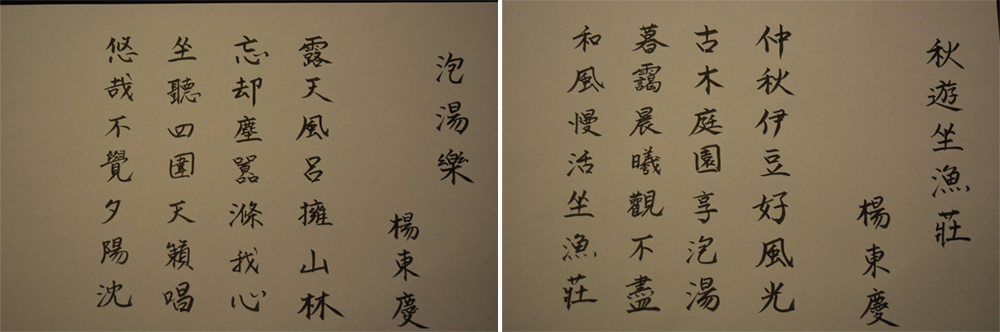 泡湯樂
楊東慶
露天風呂擁山林
忘却塵囂滌我心
坐聽四圍天籟唱
悠哉不覺夕陽沈
秋遊坐漁莊
楊東慶
仲秋伊豆好風光
古木庭園享泡湯
暮靄晨曦觀不盡
和風慢活坐漁莊